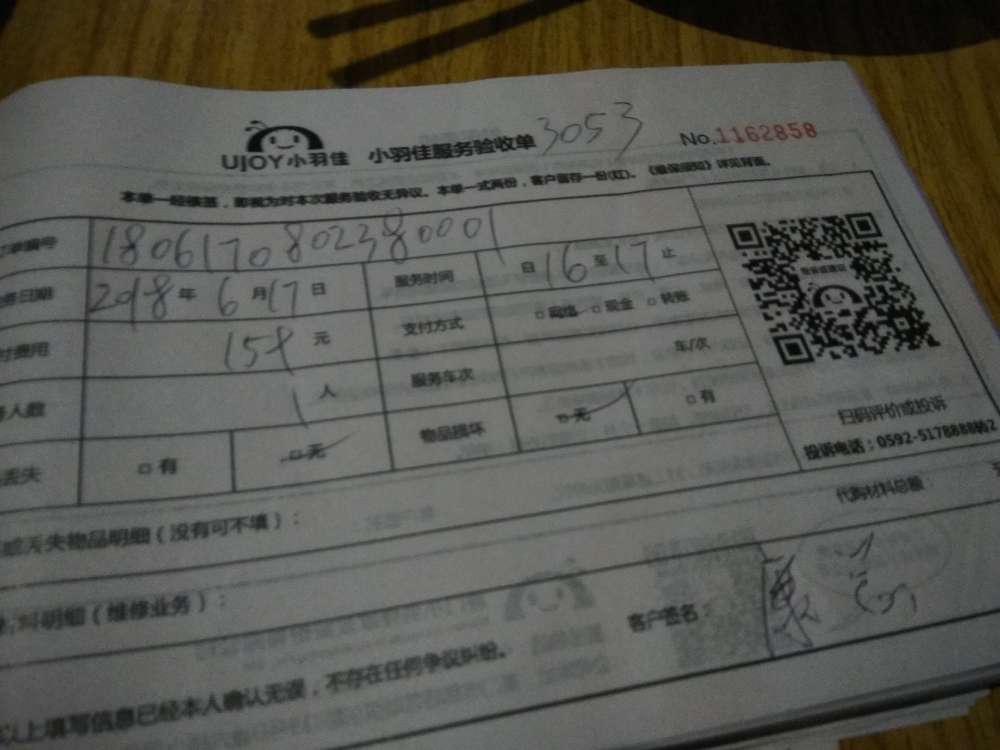 UJOY小羽佳 小羽佳服务验收单 3053 No.1162858
本单一经签签，即视为对本次服务验收无异议。本单一式两份，客户留存一份(红)。 详见背面。
单编号 1806170802380001
日期 2018年 6月17日 服务时间 自16至17止
费用 158元 支付方式 □网络 □现金 □转账
人数 1人 服务车次 车/次
丢失 □有 □无 物品损坏 □无 □有
扫码评价或投诉
投诉电话：0592-5178888转2
丢失物品明细（没有可不填）： 代购材料总额：
料明细（维修业务）：
客户签名：
以上填写信息已经本人确认无误，不存在任何争议纠纷。